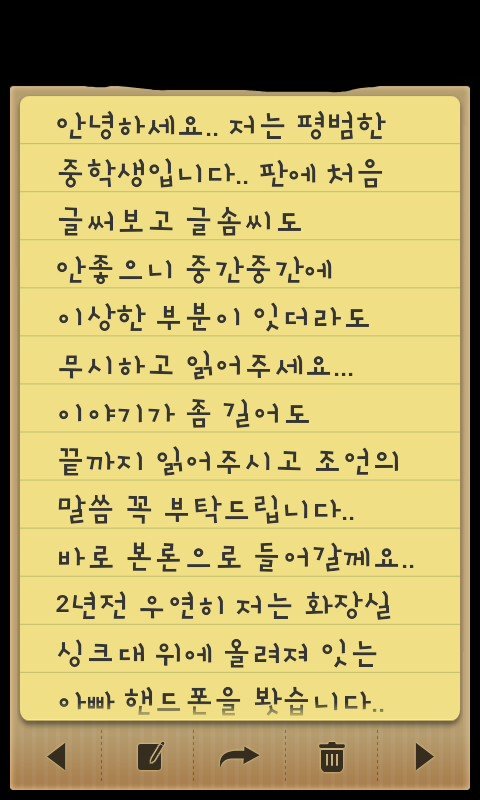 안녕하세요.. 저는 평범한
중학생입니다.. 판에 처음
글써보고 글솜씨도
안좋으니 중간중간에
이상한 부분이 잇더라도
무시하고 읽어주세요...
이야기가 좀 길어도
끝까지 읽어주시고 조언의
말씀 꼭 부탁드립니다..
바로 본론으로 들어갈께요..
2년전 우연히 저는 화장실
싱크대 위에 올려져 잇는
아빠 핸드폰을 봣습니다..